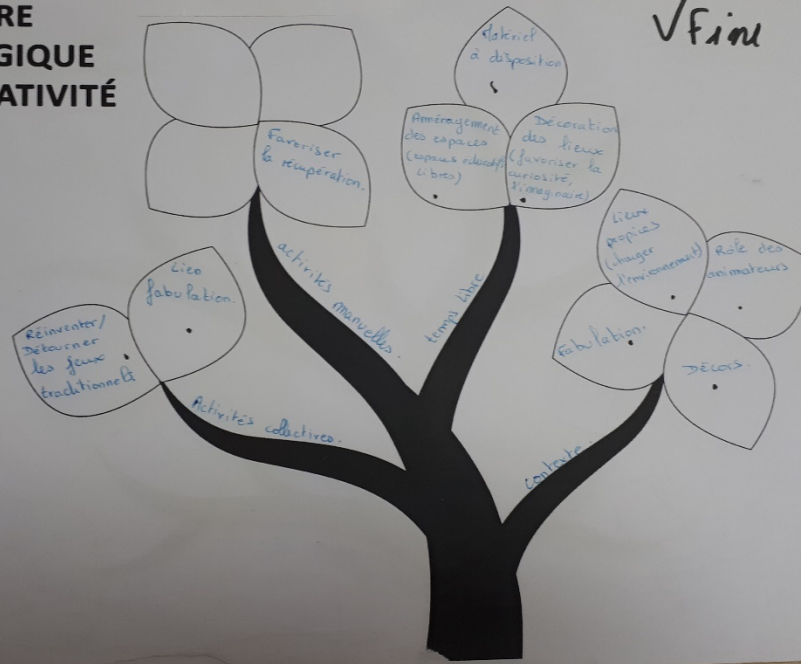 RE
GIQUE
ATIVITÉ
√ Fine
Favoriser
la récupération.
Matériel
à disposition
Aménagement
des espaces
(espaces éducatifs
libres)
Décoration
des lieux
(favoriser la
curiosité,
l'imaginaire)
Lieux
propices
(changer
l'environnement)
Rôle des
animateurs
Fabulation.
Décors.
Lien
fabulation.
Réinventer/
Détourner
les jeux
traditionnels
activités manuelles.
temps libre
Activités collectives.
contexte.